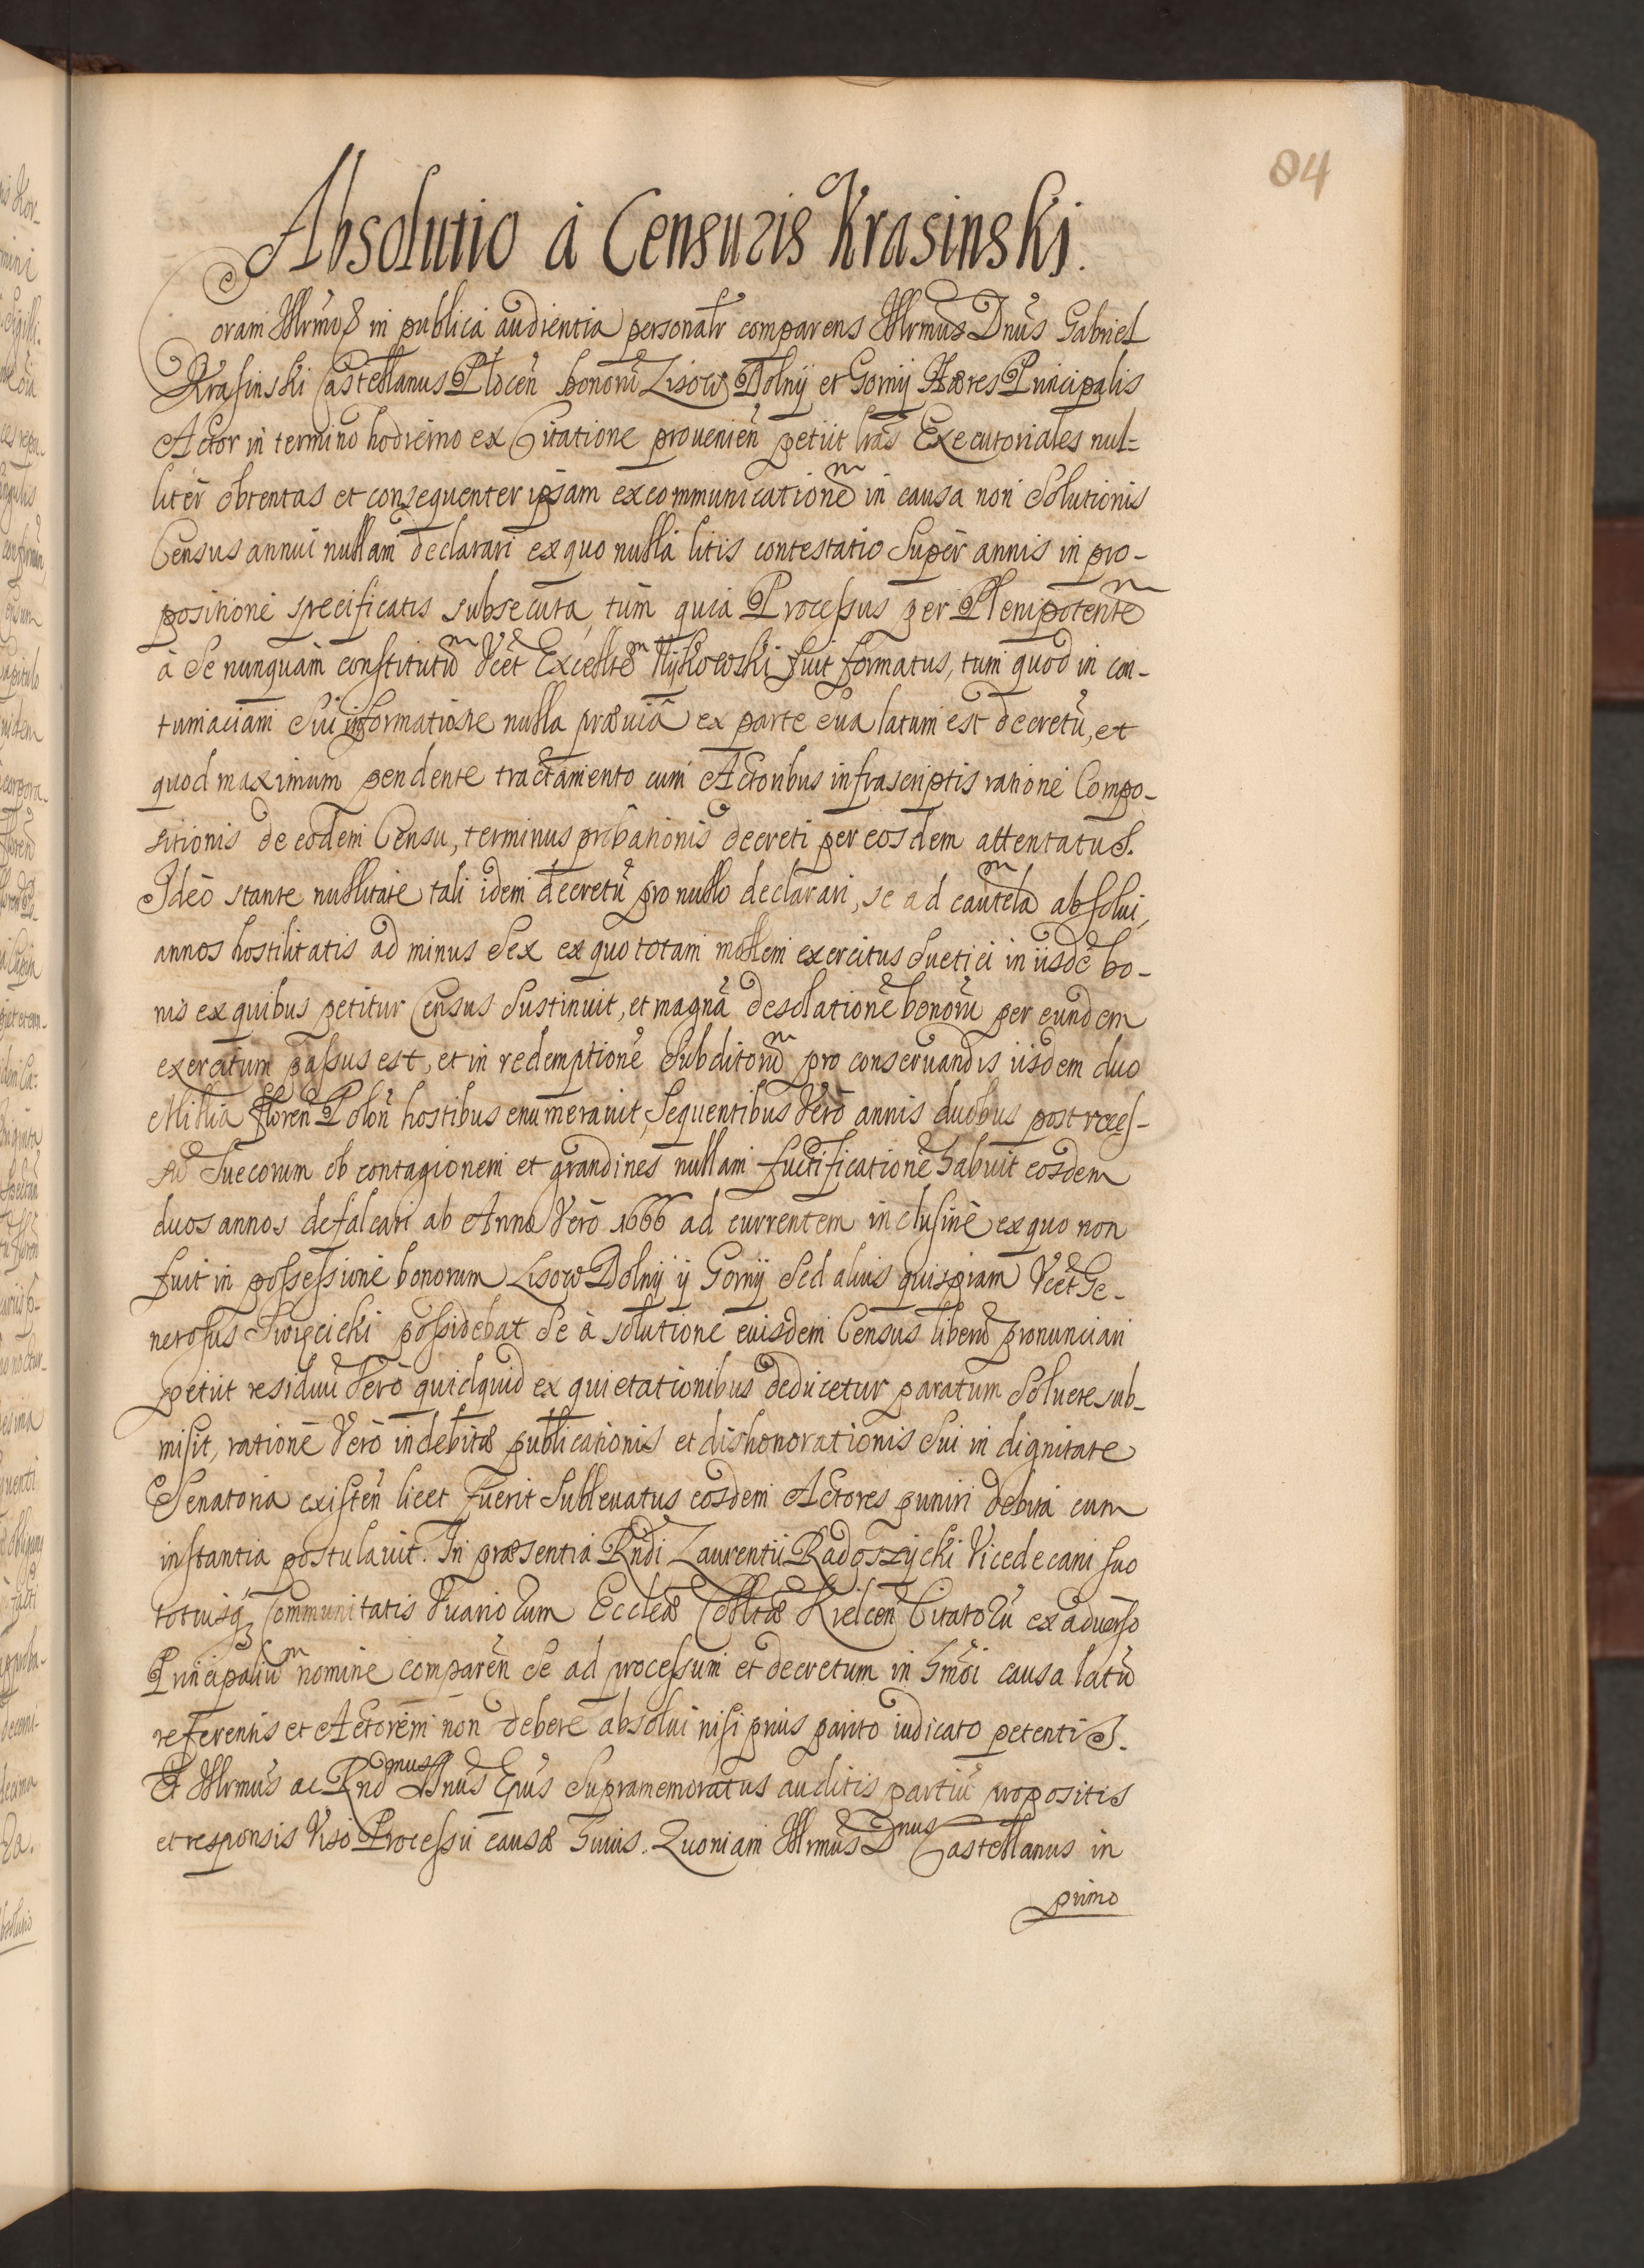 84
Absolutio à Censuris Krasinski.
Coram Illrmo &c in publica audientia personalr comparens Illrmus Dnus Gabriel
Krasinski Castellanus Plocen bonorũ Lisow Dolnij et Gornij Hæres Principalis
Actor in termino hodierno ex Citatione provenien petiit lras Executoriales nul=
liter obtentas et consequenter ipsam excommunicationem in causa non Solutionis
Census annui nullam declarari ex quo nulla litis contestatio Super annis in pro-
positione specificatis subsecuta, tum quia Processus per Plenipotentem
à Se nunquam constitutum Vcet Excellte Nijkowski fuit formatus, tum quod in con-
tumaciam Sui informatione nulla præviâ ex parte sua latum est decretũ, et
quod maximum pendente tractamento cum Actoribus infrascriptis ratione Compo-
sitionis de eodem Censu, terminus probationis decreti per eosdem attentatus.
Ideo stante nullitate tali idem decretũ pro nullo declarari, se ad cautelam absolui,
annos hostilitatis ad minus Sex ex quo totam mollem exercitus Suetici in iisdẽ bo-
nis ex quibus petitur Census Sustinuit, et magnã desolationẽ bonorũ per eundem
exercitum passus est, et in redemptione Subditorum pro conseruandis iisdem duo
Millia floren Polon hostibus enumerauit, Sequentibus Vero annis duobus post reces-
su Suecorum ob contagionem et grandines nullam fructificationẽ habuit eosdem
duos annos defalcari ab Anno Vero 1666 ad currentem inclusiuè ex quo non
fuit in possessione bonorum Lisow Dolnij ÿ Gornij Sed alius quispiam Vcet Ge-
nerosus Swięcicki possidebat Se à solutione euisdem Census liberũ pronunciari
petiit residuũ Vero quidquid ex quietationibus deducetur paratum Soluere sub-
misit, ratione Vero indebitæ publicationis et dishonorationis Sui in dignitate
Senatoria existen licet fuerit Sublevatus eosdem Actores puniri debita cum
instantia postulavit. In præsentia Rndi Laurentii Radoszycki Vicedecani suo
totiusq; Communitatis Vicariorum Eccleæ Colltæ Kielcen Citatorũ ex adverso
Principalium nomine comparen Se ad processum et decretum in hmoi causa latũ
referentis et Actorem non debere absolui nisi prius parito iudicato petentis.
Et Illrmus ac Rndmus Dnus Epus Supramemoratus auditis partiũ propositis
et responsis Viso Processu causæ huius. Quoniam Illrmus Dnus Castellanus in
primo